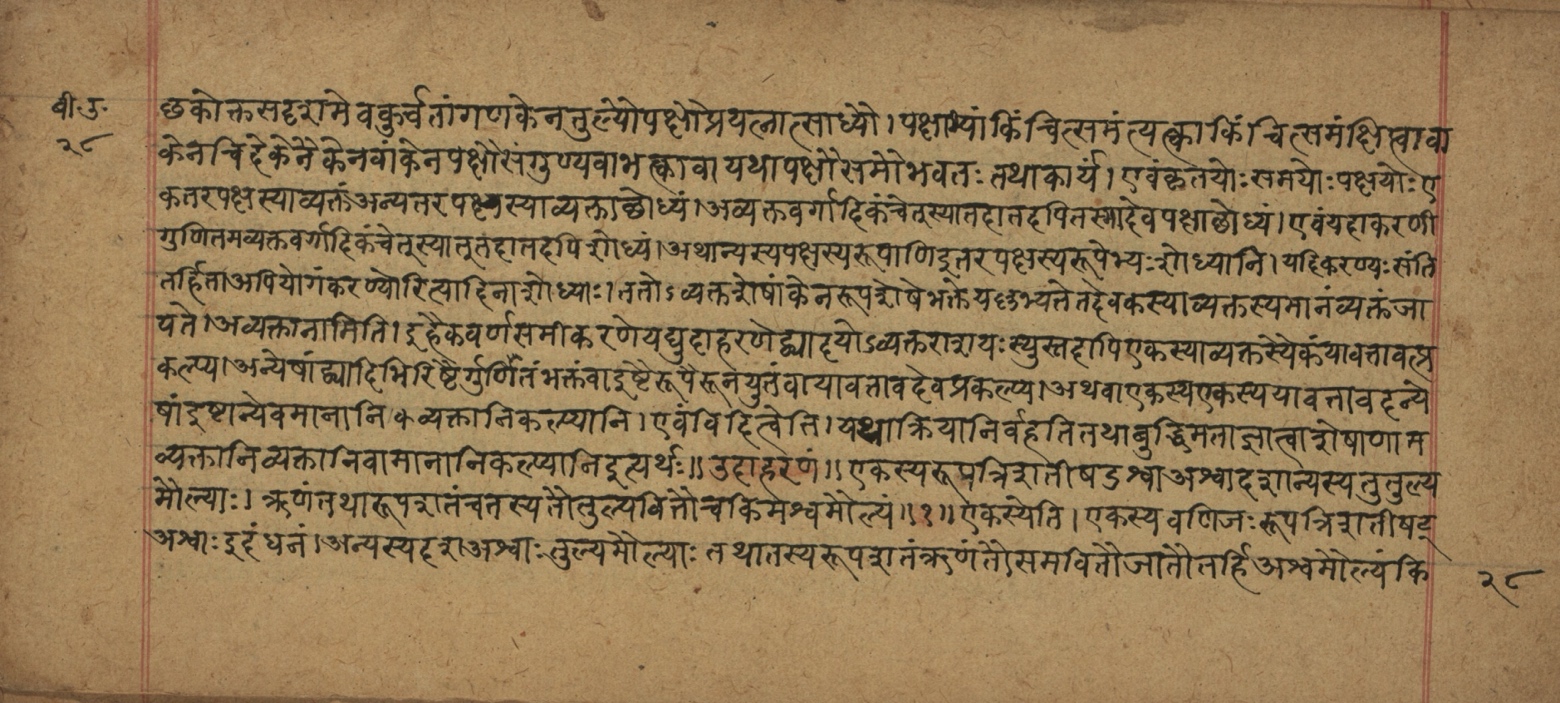 बी. उ.
२८
छकोक्तसदृशमेवकुर्वतांगणकेनतुल्यौपक्षौप्रयत्नात्साध्यौ। पक्षाभ्यांकिंचित्समंत्यत्काकिंचित्समंक्षिप्त्वावा
केनचिदेकेनैकेनवांकेनपक्षौसंगुण्यवाभत्कावायथापक्षौसमौभवतः तथाकार्यं। एवंकृतयोः समयोः पक्षयोः ए
कतरपक्षस्याव्यक्तंअन्यतरपक्षस्याव्यक्ताछोध्यं। अव्यक्तवर्गादिकंचेत्स्यातदातदपितस्मादेवपक्षाछोध्यं। एवंयदाकरणी
गुणितमव्यक्तवर्गादिकंचेत्स्यात्तदातदपिशोध्यं। अथान्यस्यपक्षस्यरूपाणिइतरपक्षस्यरूपेभ्यः शोध्यानि। यदिकरण्यः संति
तर्हिताअपियोगंकरण्योरित्यादिनाशोध्याः। ततोऽव्यक्तशेषांकेनरूपशेषेभक्तेयल्लभ्यतेतदेवकस्याव्यक्तस्यमानंव्यक्तंजा
यते। अव्यक्तानामिति। इहैकवर्णसमीकरणेयद्युदाहरणेद्व्यादयोऽव्यक्तराशयः स्युस्तदापिएकस्याव्यक्तस्यैकंयावत्तावत्प्र
कल्प्य। अन्येषांद्व्यादिभिरिष्टैर्गुणितंभक्तंवाइष्टैरूपैरूनंयुतंवायावत्तावदेवप्रकल्प्य। अथवाएकस्यएकस्ययावत्तावदन्ये
षांइष्टान्येवमानानि व्यक्तानिकल्प्यानि। एवंविदित्वेति। यथाक्रियानिर्वहतितथाबुद्धिमताज्ञात्वाशेषाणाम
व्यक्तानिव्यक्तानिवामानानिकल्प्यानिइत्यर्थः॥ उदाहरणं॥ एकस्यरूपत्रिशतीषडश्वाअश्वादशान्यस्यतुतुल्य
मौल्याः। ऋणंतथारूपशतंचतस्यतौतुल्यवित्तौचकिमश्वमौल्यं॥१॥ एकस्येति। एकस्यवणिजः रूपत्रिशतीषट्
अश्वाः इदंधनं। अन्यस्यदशअश्वाः तुल्यमौल्याः तथातस्यरूपशतंऋणंतौसमवित्तौजातौतर्हिअश्वमौल्यंकि
२८